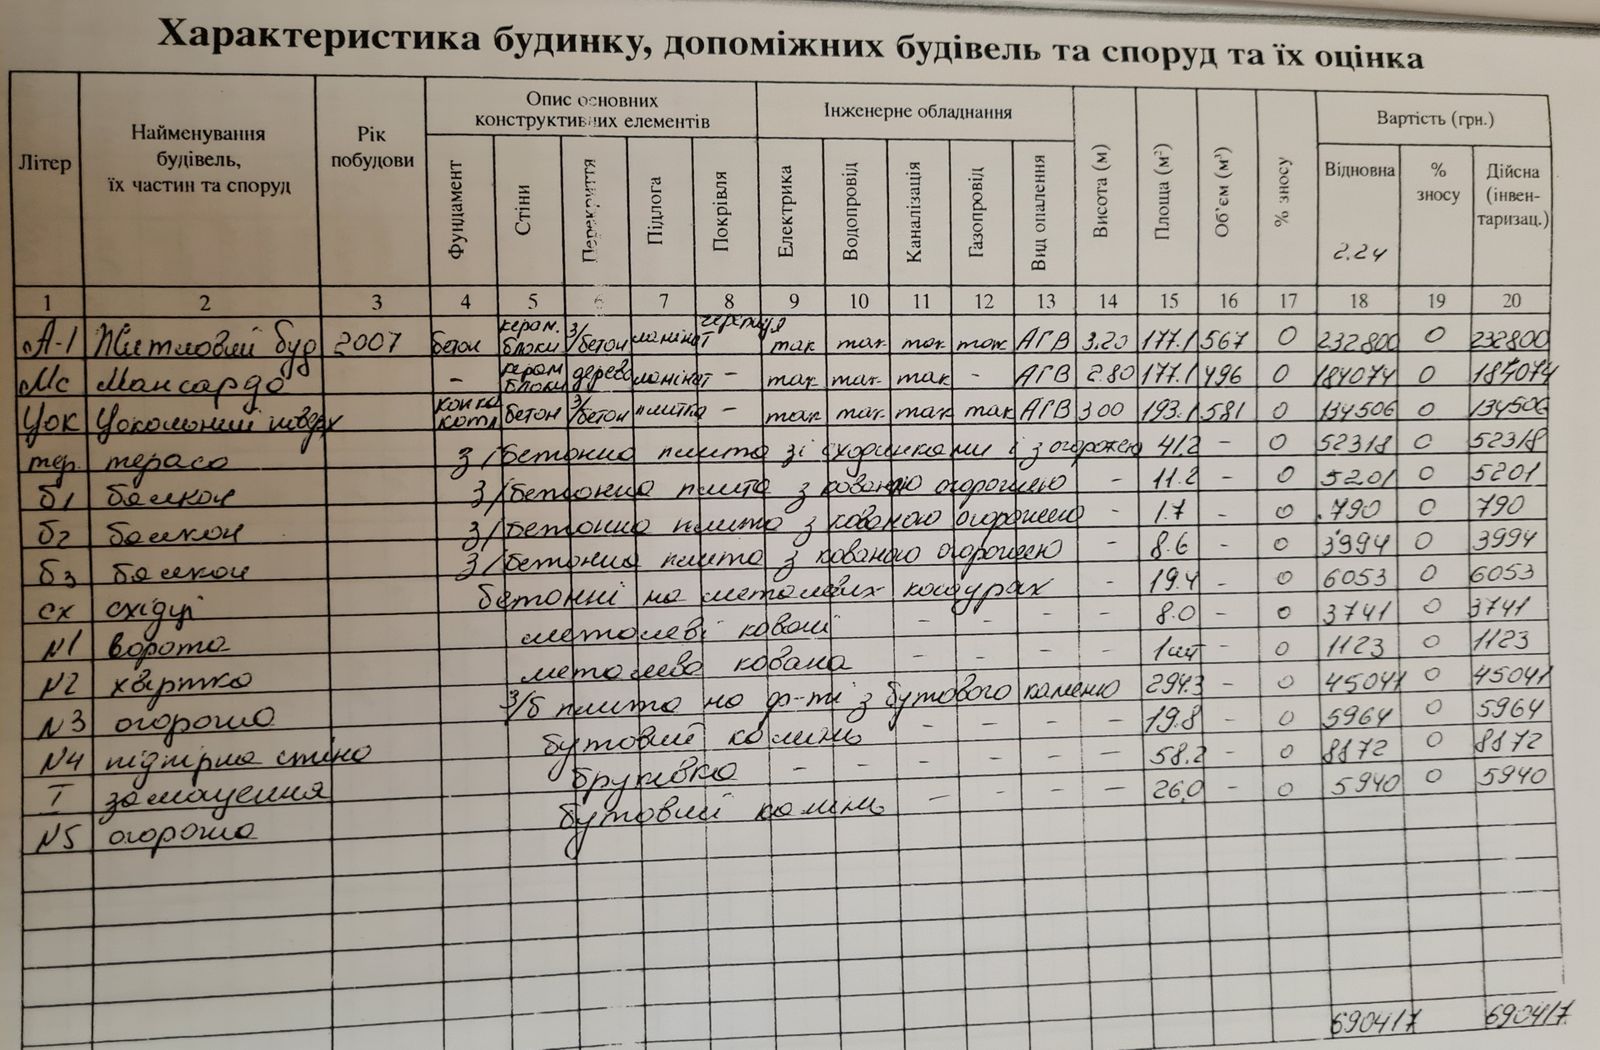 Характеристика будинку, допоміжних будівель та споруд та їх оцінка
Літер
Найменування
будівель,
їх частин та споруд
Рік
побудови
Опис основних
конструктивних елементів
Інженерне обладнання
Висота (м)
Площа (м²)
Об'єм (м³)
% зносу
Вартість (грн.)
Фундамент
Стіни
Перекриття
Підлога
Покрівля
Електрика
Водопровід
Каналізація
Газопровід
Вид опалення
Відновна
2.24
%
зносу
Дійсна
(інвен-
таризац.)
1 2 3 4 5 6 7 8 9 10 11 12 13 14 15 16 17 18 19 20
А-1 Житловий буд 2007 бетон керам. блоки з/бетон ламінат черепиця так так так так АГВ 3.20 177.1 567 0 232800 0 232800
Мс Мансарда - керам блоки дерево ламінат - так так так - АГВ 2.80 177.1 496 0 184074 0 184074
Цок Цокольний поверх бетон з/бетон плитка - так так так так АГВ 3 00 193.1 581 0 134506 0 134506
тер. тераса з/бетонна плита зі сходинками і з огорожею 41.2 - 0 52318 0 52318
б1 балкон з/бетонна плита з кованою огорожею - 11.2 - 0 5201 0 5201
б2 балкон з/бетонна плита з кованою огорожею - 1.7 - 0 790 0 790
б3 балкон з/бетонна плита з кованою огорожею - 8.6 - 0 3994 0 3994
сх східці бетонні на металевих косоурах - 19.4 - 0 6053 0 6053
N1 ворота металеві ковані - - - - - 8.0 - 0 3741 0 3741
N2 хвіртка металева кована - - - - - 1шт - 0 1123 0 1123
N3 огорожа з/б плита на ф-ті з бутового каменю 294.3 - 0 45041 0 45041
N4 підпірна стіна бутовий камінь - - - - 19.8 - 0 5964 0 5964
I замощення бруківка - - - - - - 58.2 - 0 8172 0 8172
N5 огорожа бутовий камінь - - - - 26.0 - 0 5940 0 5940
690417 690417